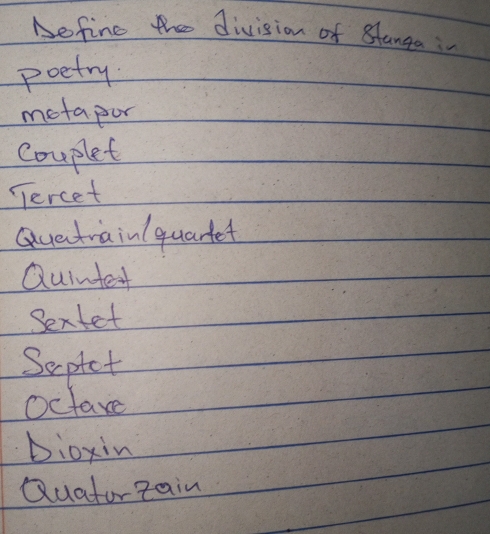 Define the division of Stanza in
poetry.
metapor
Couplet
Tercet
Quatrain/quartet
Quintet
Sextet
Septet
Octave
Dioxin
Quatorzain